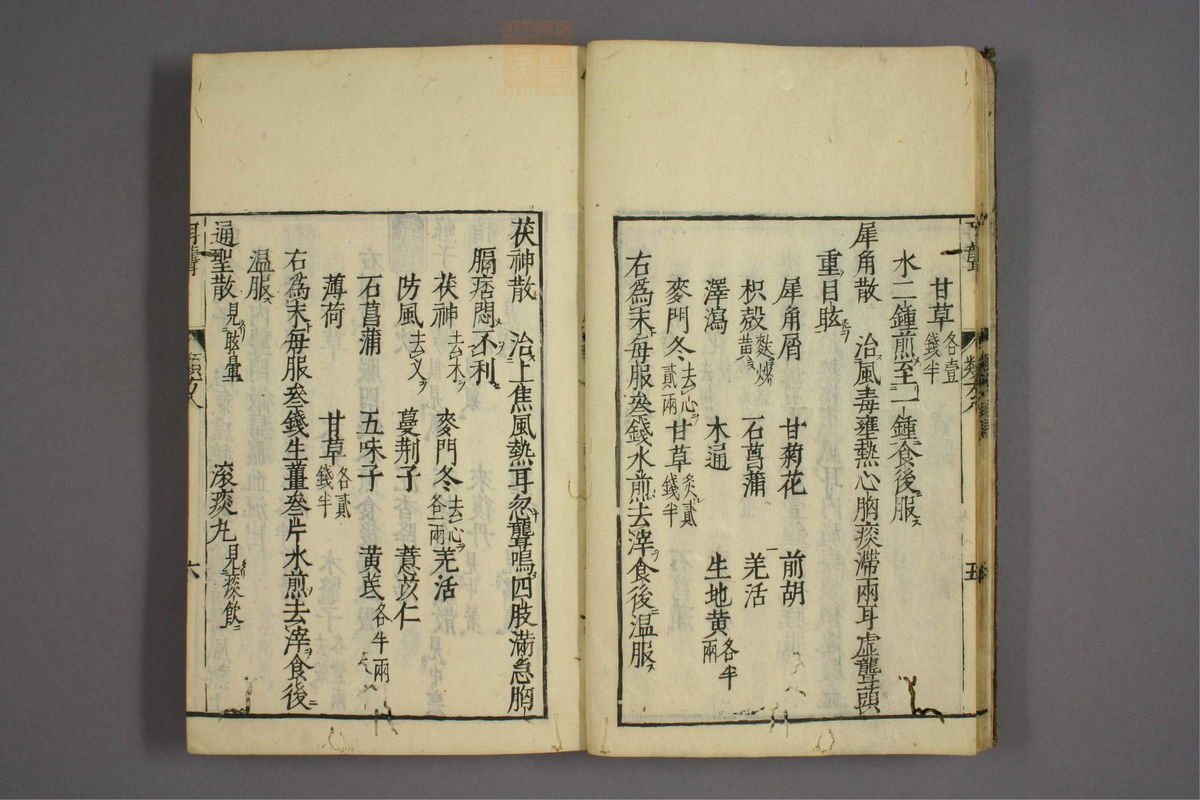 甘草各壹錢半
水二鍾煎至一鍾食後服
犀角散　治風毒壅熱心胸痰滯兩耳虛聾頭
重目眩
犀角屑　甘菊花　前胡
枳殼麩炒黃　石菖蒲　羌活
澤瀉　木通　生地黃各半兩
麥門冬去心貳兩　甘草炙貳錢半
右為末每服叄錢水煎去滓食後温服
茯神散　治上焦風熱耳忽聾鳴四肢滿急胸
膈痞悶不利
茯神去木　麥門冬去心各一兩　羌活
防風去叉　蔓荊子　薏苡仁
石菖蒲　五味子　黃芪各半兩
薄荷　甘草各貳錢半
右為末每服叄錢生薑叄片水煎去滓食後
温服
通聖散見眩暈　滾痰丸見痰飲
耳聾
六